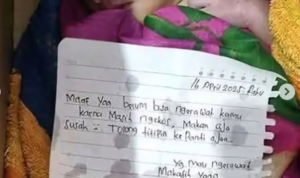 16 April 2025 Rabu
Maaf Yaa belum bisa ngerawat kamu
karna Masih ngekos, Makan aja
susah :. Tolong titipin ke Panti aja..
Yg mau ngerawat
Makasih Yang